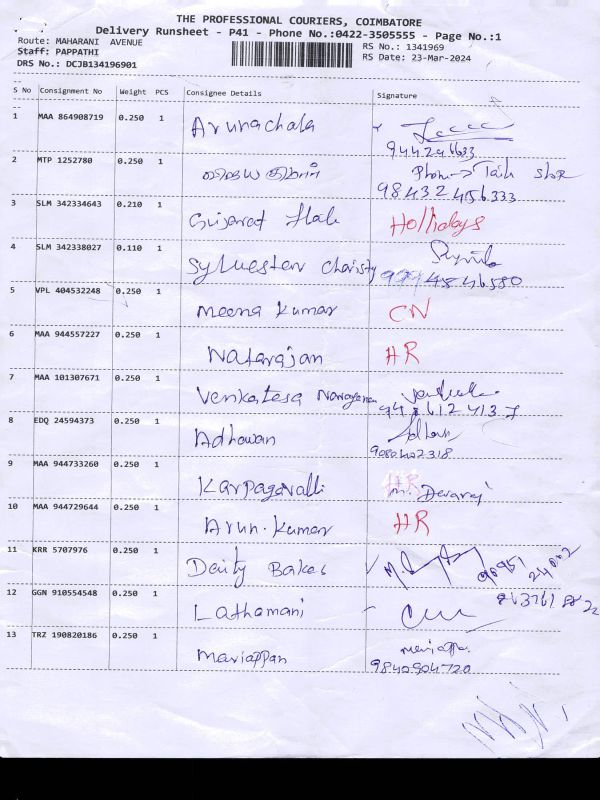 THE PROFESSIONAL COURIERS, COIMBATORE
Delivery Runsheet - P41 - Phone No.:0422-3505555 - Page No.:1
Route: MAHARANI AVENUE
Staff: PAPPATHI
DRS No.: DCJB134196901
RS No.: 1341969
RS Date: 23-Mar-2024
S No Consignment No Weight PCS Consignee Details Signature
1 MAA 864908719 0.250 1 Arunachala
2 MTP 1252780 0.250 1 Phone
98432 456333
3 SLM 342334643 0.210 1 Gujarat Hollidays
4 SLM 342338027 0.110 1 Sylvester Christy
5 VPL 404532248 0.250 1 Meena Kumar CN
6 MAA 944557227 0.250 1 Natarajan HR
7 MAA 101307671 0.250 1 Venkatesa Narayanan
8 EDQ 24594373 0.250 1 Adhavan
9080402318
9 MAA 944733260 0.250 1 Karpagavalli HR
M. Devaraj
10 MAA 944729644 0.250 1 Arun. Kumar HR
11 KRR 5707976 0.250 1 Daily Bakes
12 GGN 910554548 0.250 1 Lathamani
13 TRZ 190820186 0.250 1 Mariappan
9840904720